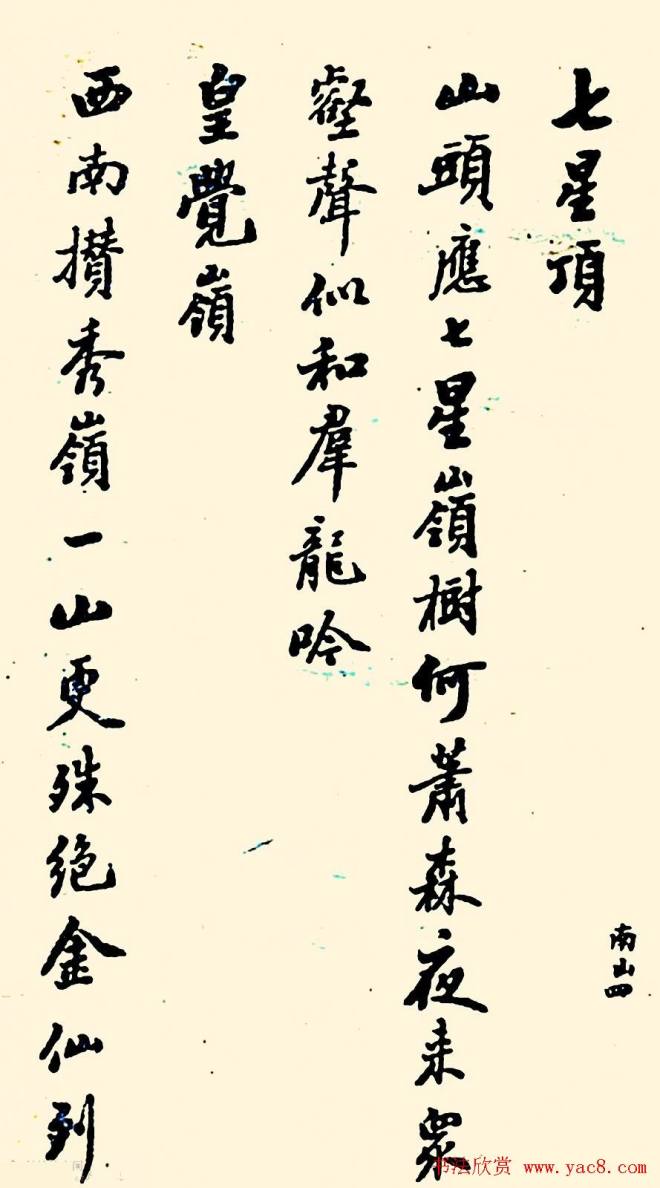 七星頂
山頭應七星嶺樹何蕭森夜來眾
壑聲似和羣龍吟
皇覺嶺
西南攢秀嶺一山更殊絕金仙列
南山四
书法欣赏 www.yac8.com